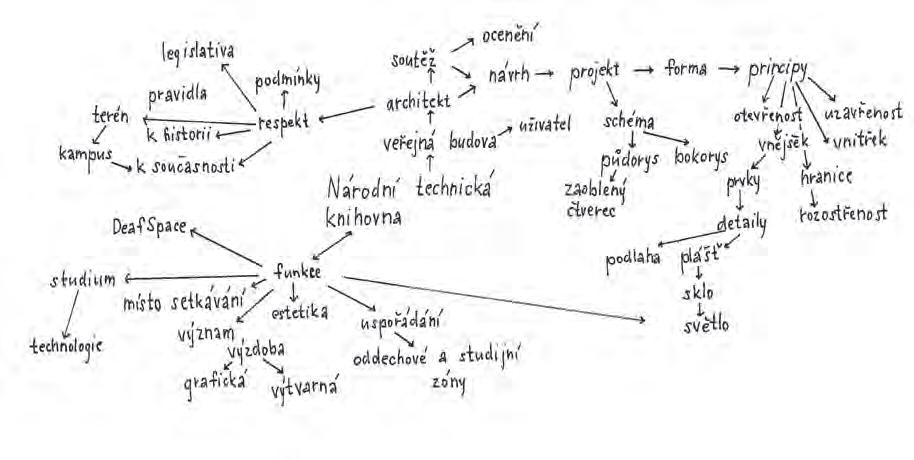 ocenění
legislativa
soutěž
podmínky
návrh
projekt
forma
principy
pravidla
architekt
terén
respekt
schéma
otevřenost
uzavřenost
k historii
veřejná budova
uživatel
vnějšek
vnitřek
kampus
k současnosti
půdorys
bokorys
prvky
hranice
Národní technická
knihovna
zaoblený
čtverec
rozostřenost
detaily
DeafSpace
podlaha
plášť
funkce
studium
místo setkávání
sklo
estetika
uspořádání
světlo
význam
technologie
výzdoba
oddechové a studijní
zóny
grafická
výtvarná